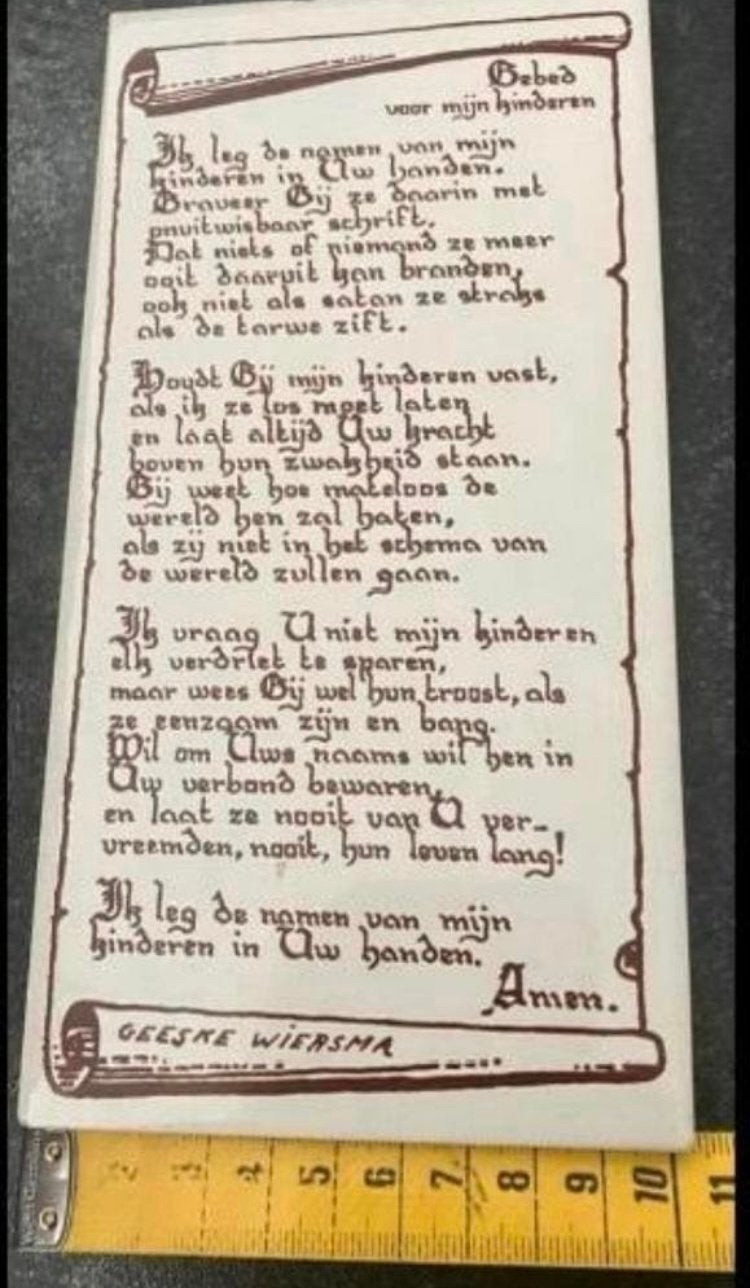 Gebed
voor mijn kinderen
Ik leg de namen van mijn
kinderen in Uw handen.
Graveer Gij ze daarin met
onuitwisbaar schrift.
Dat niets of niemand ze meer
ooit daaruit kan branden,
ook niet als satan ze straks
als de tarwe zift.
Houdt Gij mijn kinderen vast,
als ik ze los moet laten
en laat altijd Uw kracht
boven hun zwakheid staan.
Gij weet hoe mateloos de
wereld hen zal haten,
als zij niet in het schema van
de wereld zullen gaan.
Ik vraag U niet mijn kinderen
elk verdriet te sparen,
maar wees Gij wel hun troost, als
ze eenzaam zijn en bang.
Wil om Uws naams wil hen in
Uw verbond bewaren,
en laat ze nooit van U ver-
vreemden, nooit, hun leven lang!
Ik leg de namen van mijn
kinderen in Uw handen.
Amen.
GEESKE WIERSMA
2 3 4 5 6 7 8 9 10 11